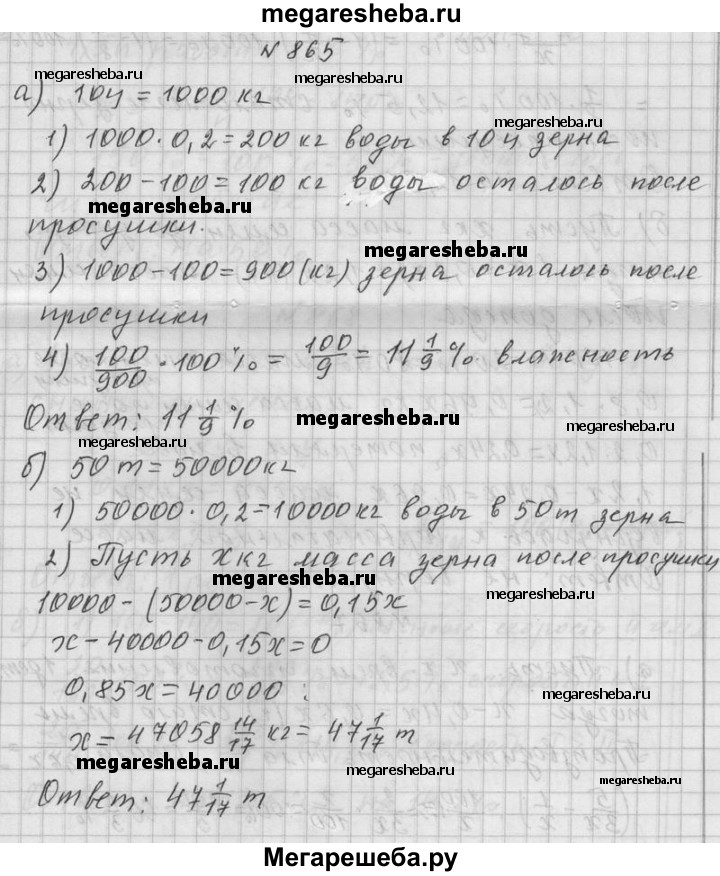 megaresheba.ru
N 865
megaresheba.ru megaresheba.ru
а) 10ц = 1000 кг
1) 1000 · 0,2 = 200 кг воды в 10 ц зерна
megaresheba.ru
2) 200 - 100 = 100 кг воды осталось после
megaresheba.ru
просушки.
megaresheba.ru
3) 1000 - 100 = 900 (кг) зерна осталось после
просушки
4) 100/900 · 100 % = 100/9 = 11 1/9 %. влажность
Ответ: 11 1/9 %
megaresheba.ru
megaresheba.ru megaresheba.ru
б) 50 т = 50000 кг
1) 50000 · 0,2 = 10000 кг воды в 50 т зерна
2) Пусть x кг масса зерна после просушки
megaresheba.ru
megaresheba.ru
10000 - (50000 - x) = 0,15x
x - 40000 - 0,15x = 0
0,85x = 40000
megaresheba.ru
x = 47058 14/17 кг = 47 1/17 т
megaresheba.ru
megaresheba.ru
megaresheba.ru
Ответ: 47 1/17 т
Мегарешеба.ру